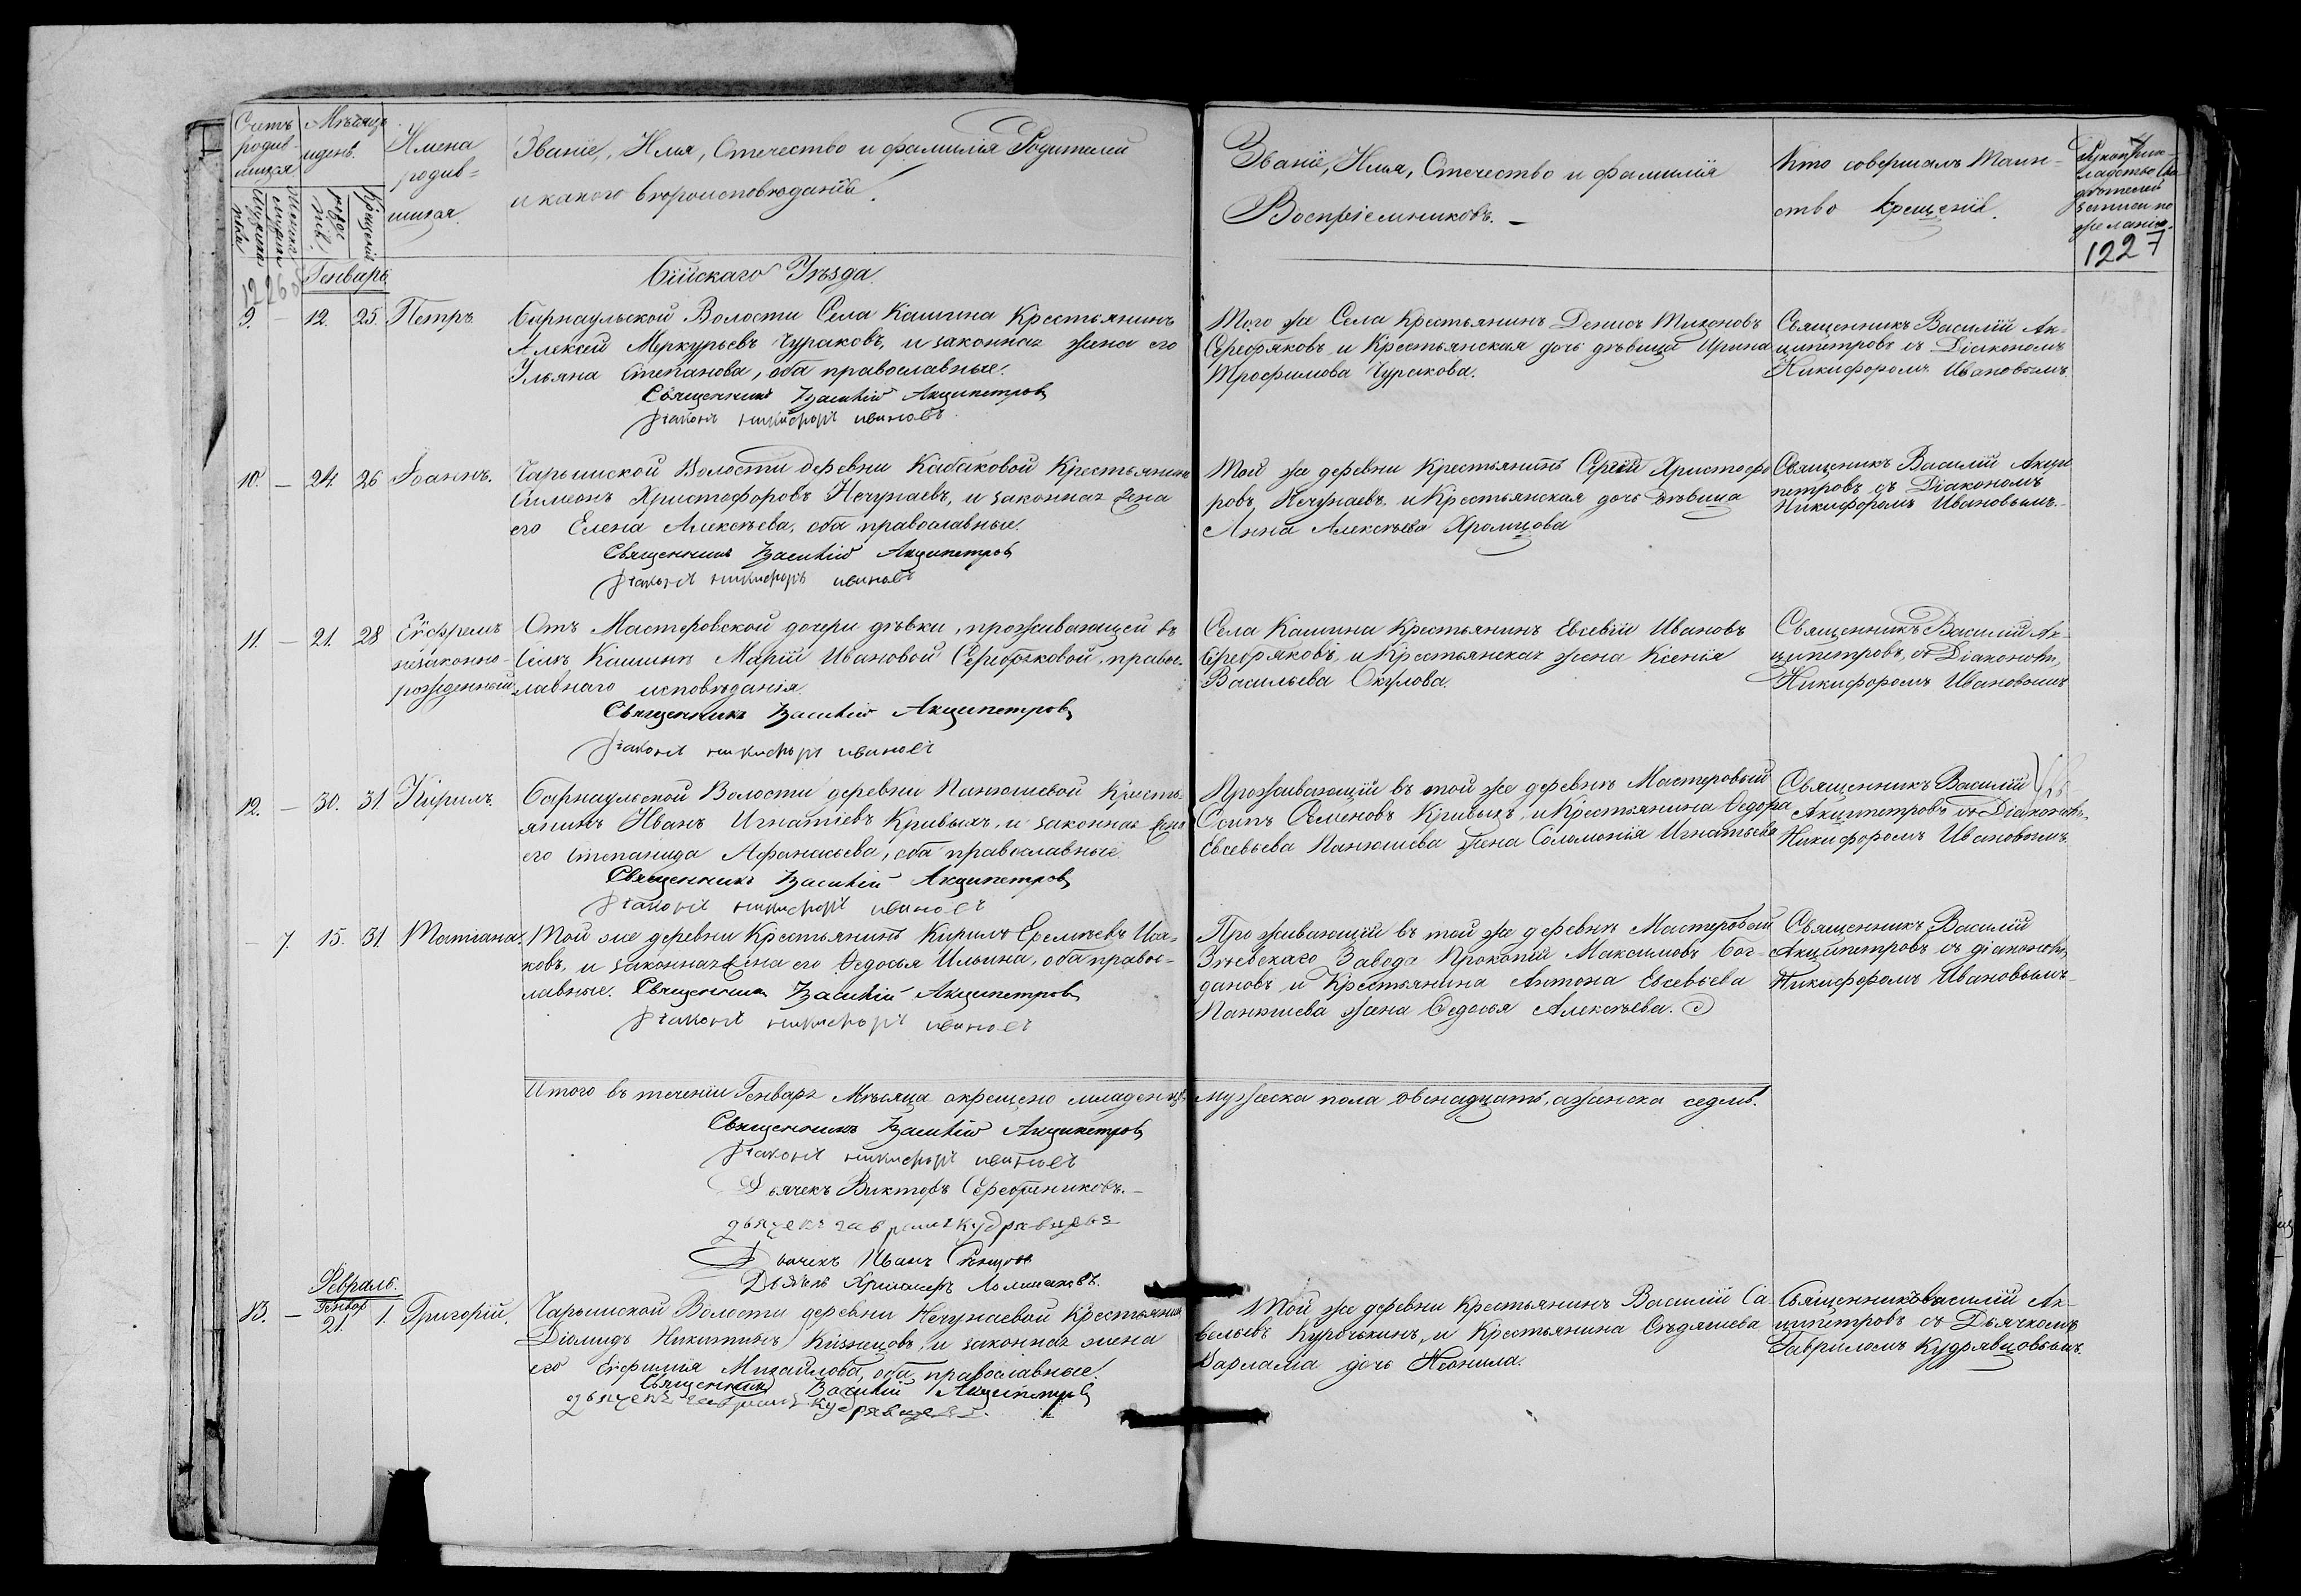 Счетъ родив-шихся
Мѣсяцъ и день.
Имена родив=шихся.
Званіе, Имя, Отечество и фамилія Родителей
и какого вѣроисповѣданія.
Званіе, Имя, Отечество и фамилія
Воспріемниковъ. –
Кто совершалъ Таин-
ство Крещенія.
Рукоприк-
ладство сви-
дѣтелей
записи по
желанію.
Мужеска пола
Женска
рожде-нія.
Крещенія
1226
1227
Генварь.
Бійскаго Уѣзда.
9. – 12. 25. Петръ.
Барнаульской Волости Села Кашина Крестьянинъ
Алексѣй Меркурьевъ Чураковъ, и законная жена его
Ульяна Степанова, оба православные.
Священникъ Василій Акципетровъ
Діаконъ никифоръ ивановъ
Того же Села Крестьянинъ Денисъ Тихоновъ
Серебряковъ, и Крестьянская дочь дѣвица Ирина
Трофимова Чуракова.
Священникъ Василій Ак-
ципетровъ съ Діакономъ
Никифоромъ Ивановымъ.
10. – 24. 26 Іоаннъ.
Чарышской Волости деревни Кабаковой Крестьянинъ
Симеонъ Христофоровъ Нечунаевъ, и законная жена
его Елена Алексѣева, оба православные.
Священникъ Василій Акципетровъ
Діаконъ никифоръ ивановъ
Той же деревни Крестьянинъ Сергій Христофо
ровъ Нечунаевъ, и Крестьянская дочь дѣвица
Анна Алексѣева Хромцова
Священикъ Василій Акци
петровъ съ Діакономъ
Никифоромъ Ивановымъ.
11. – 21. 28 Ефремъ
незаконно-
рожденный
Отъ Мастеровской дочери дѣвки, проживающей въ
селѣ Кашинѣ Маріи Ивановой Серебряковой, правос-
лавнаго исповѣданія.
Священникъ Василій Акципетровъ
Діаконъ никифоръ ивановъ
Села Кашина Крестьянинъ Евсевій Ивановъ
Серебряковъ, и Крестьянская жена Ксенія
Васильева Окулова.
Священникъ Василій Ак-
ципетровъ, съ Діакономъ,
Никифоромъ Ивановымъ
12. – 30. 31 Кирилъ.
Барнаульской Волости деревни Панюшевой Кресть-
янинъ Иванъ Игнатіевъ Кривыхъ, и законная жена
его Степанида Афанасьева, оба православные
Священникъ Василій Акципетровъ
Діаконъ никифоръ ивановъ
Проживающій въ той же деревнѣ Мастеровый
Осипъ Семеновъ Кривыхъ, и Крестьянина Ѳедора
Евсевьева Панюшева жена Соломонія Игнатьева
Священникъ Василій
Акципетровъ съ Діакономъ
Никифоромъ Ивановымъ.
– 7. 15. 31. Татіана.
Той же деревни Крестьянинъ Кирилъ Еремѣевъ Иса-
ковъ, и законная жена его Ѳедосья Ильина, оба правос-
лавные. Священникъ Василій Акципетровъ
Діаконъ никифоръ ивановъ
Проживающій въ той же деревнѣ Мастеровый
Змѣевскаго Завода Прокопій Максимовъ Бог-
дановъ, и Крестьянина Антона Евсевьева
Панюшева жена Ѳедосья Алексѣева.
Священникъ Василій
Акципетровъ съ діакономъ,
Никифоромъ Ивановымъ
Итого въ теченіи Генваря Мѣсяца окрещено младенцевъ мужеска пола двенадцать, а женска седмь.
Священникъ Василій Акципетровъ
Діаконъ никифоръ ивановъ
Дьячекъ Викторъ Серебрениковъ. –
дьячекъ гавриилъ кудрявцевъ
Дьячекъ Иванъ
Февраль.
13. – Генвар 21. 1. Григорій.
Чарышской Волости деревни Нечунаевой Крестьянинъ
Діомидъ Никитинъ Кузнецовъ, и законная жена
его Евфимія Михайлова, оба православные.
Священникъ Василій Акципетровъ
дьячекъ гавриилъ кудрявцевъ.
Той же деревни Крестьянинъ Василій Са-
вельевъ Курочкинъ, и Крестьянина Сѣдяшева
Варлама дочь Неонила.
Священникъ Василій Ак-
ципетровъ съ Дьячкомъ
Гавриломъ Кудрявцовымъ.